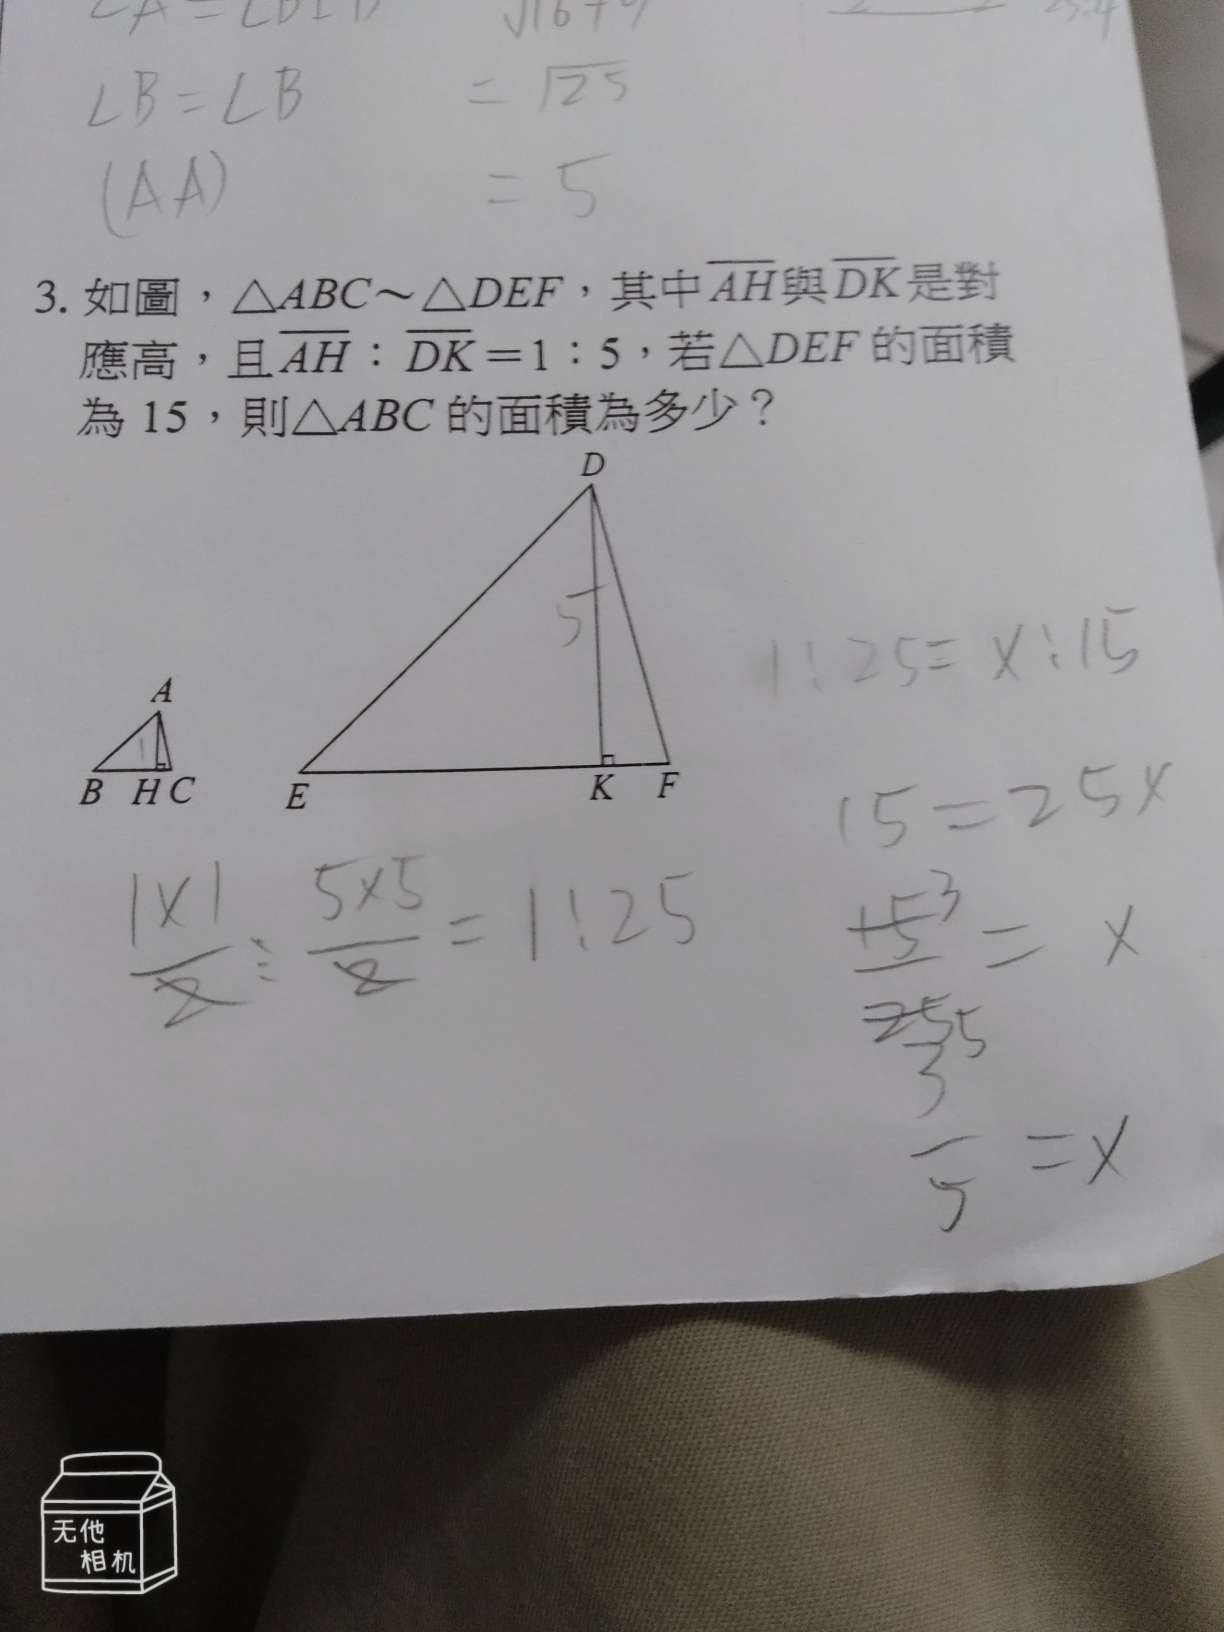 ∠B=∠B
=√25
(AA)
=5
3. 如圖，△ABC～△DEF，其中AH與DK是對
應高，且AH：DK=1：5，若△DEF的面積
為15，則△ABC的面積為多少？
D
5
A
1
B H C
E K F
1:25=x:15
15=25x
1×1/2 : 5×5/2 = 1:25
15 3 = x
25 5
3/5 = x
无他
相机